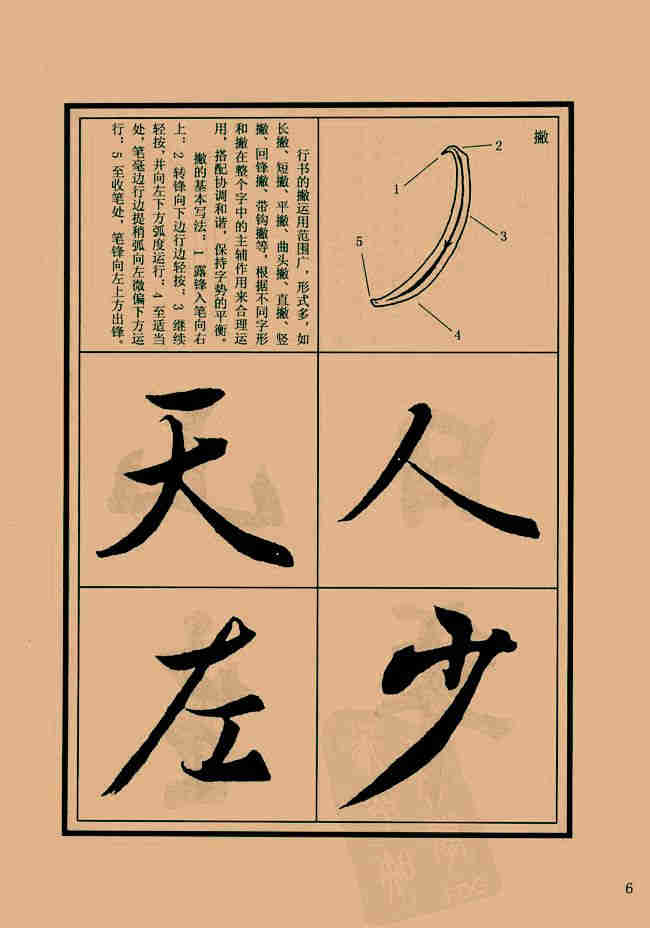 撇
1
2
3
4
5
行书的撇运用范围广，形式多，如
长撇、短撇、平撇、曲头撇、直撇、竖
撇、回锋撇、带钩撇等，根据不同字形
和撇在整个字中的主辅作用来合理运
用，搭配协调和谐，保持字势的平衡。
撇的基本写法：1 露锋入笔向右
上；2 转锋向下边行边轻按；3 继续
轻按，并向左下方弧度运行；4 至适当
处，笔毫边行边提稍弧向左微偏下方运
行；5 至收笔处，笔锋向左上方出锋。
人
天
少
左
6